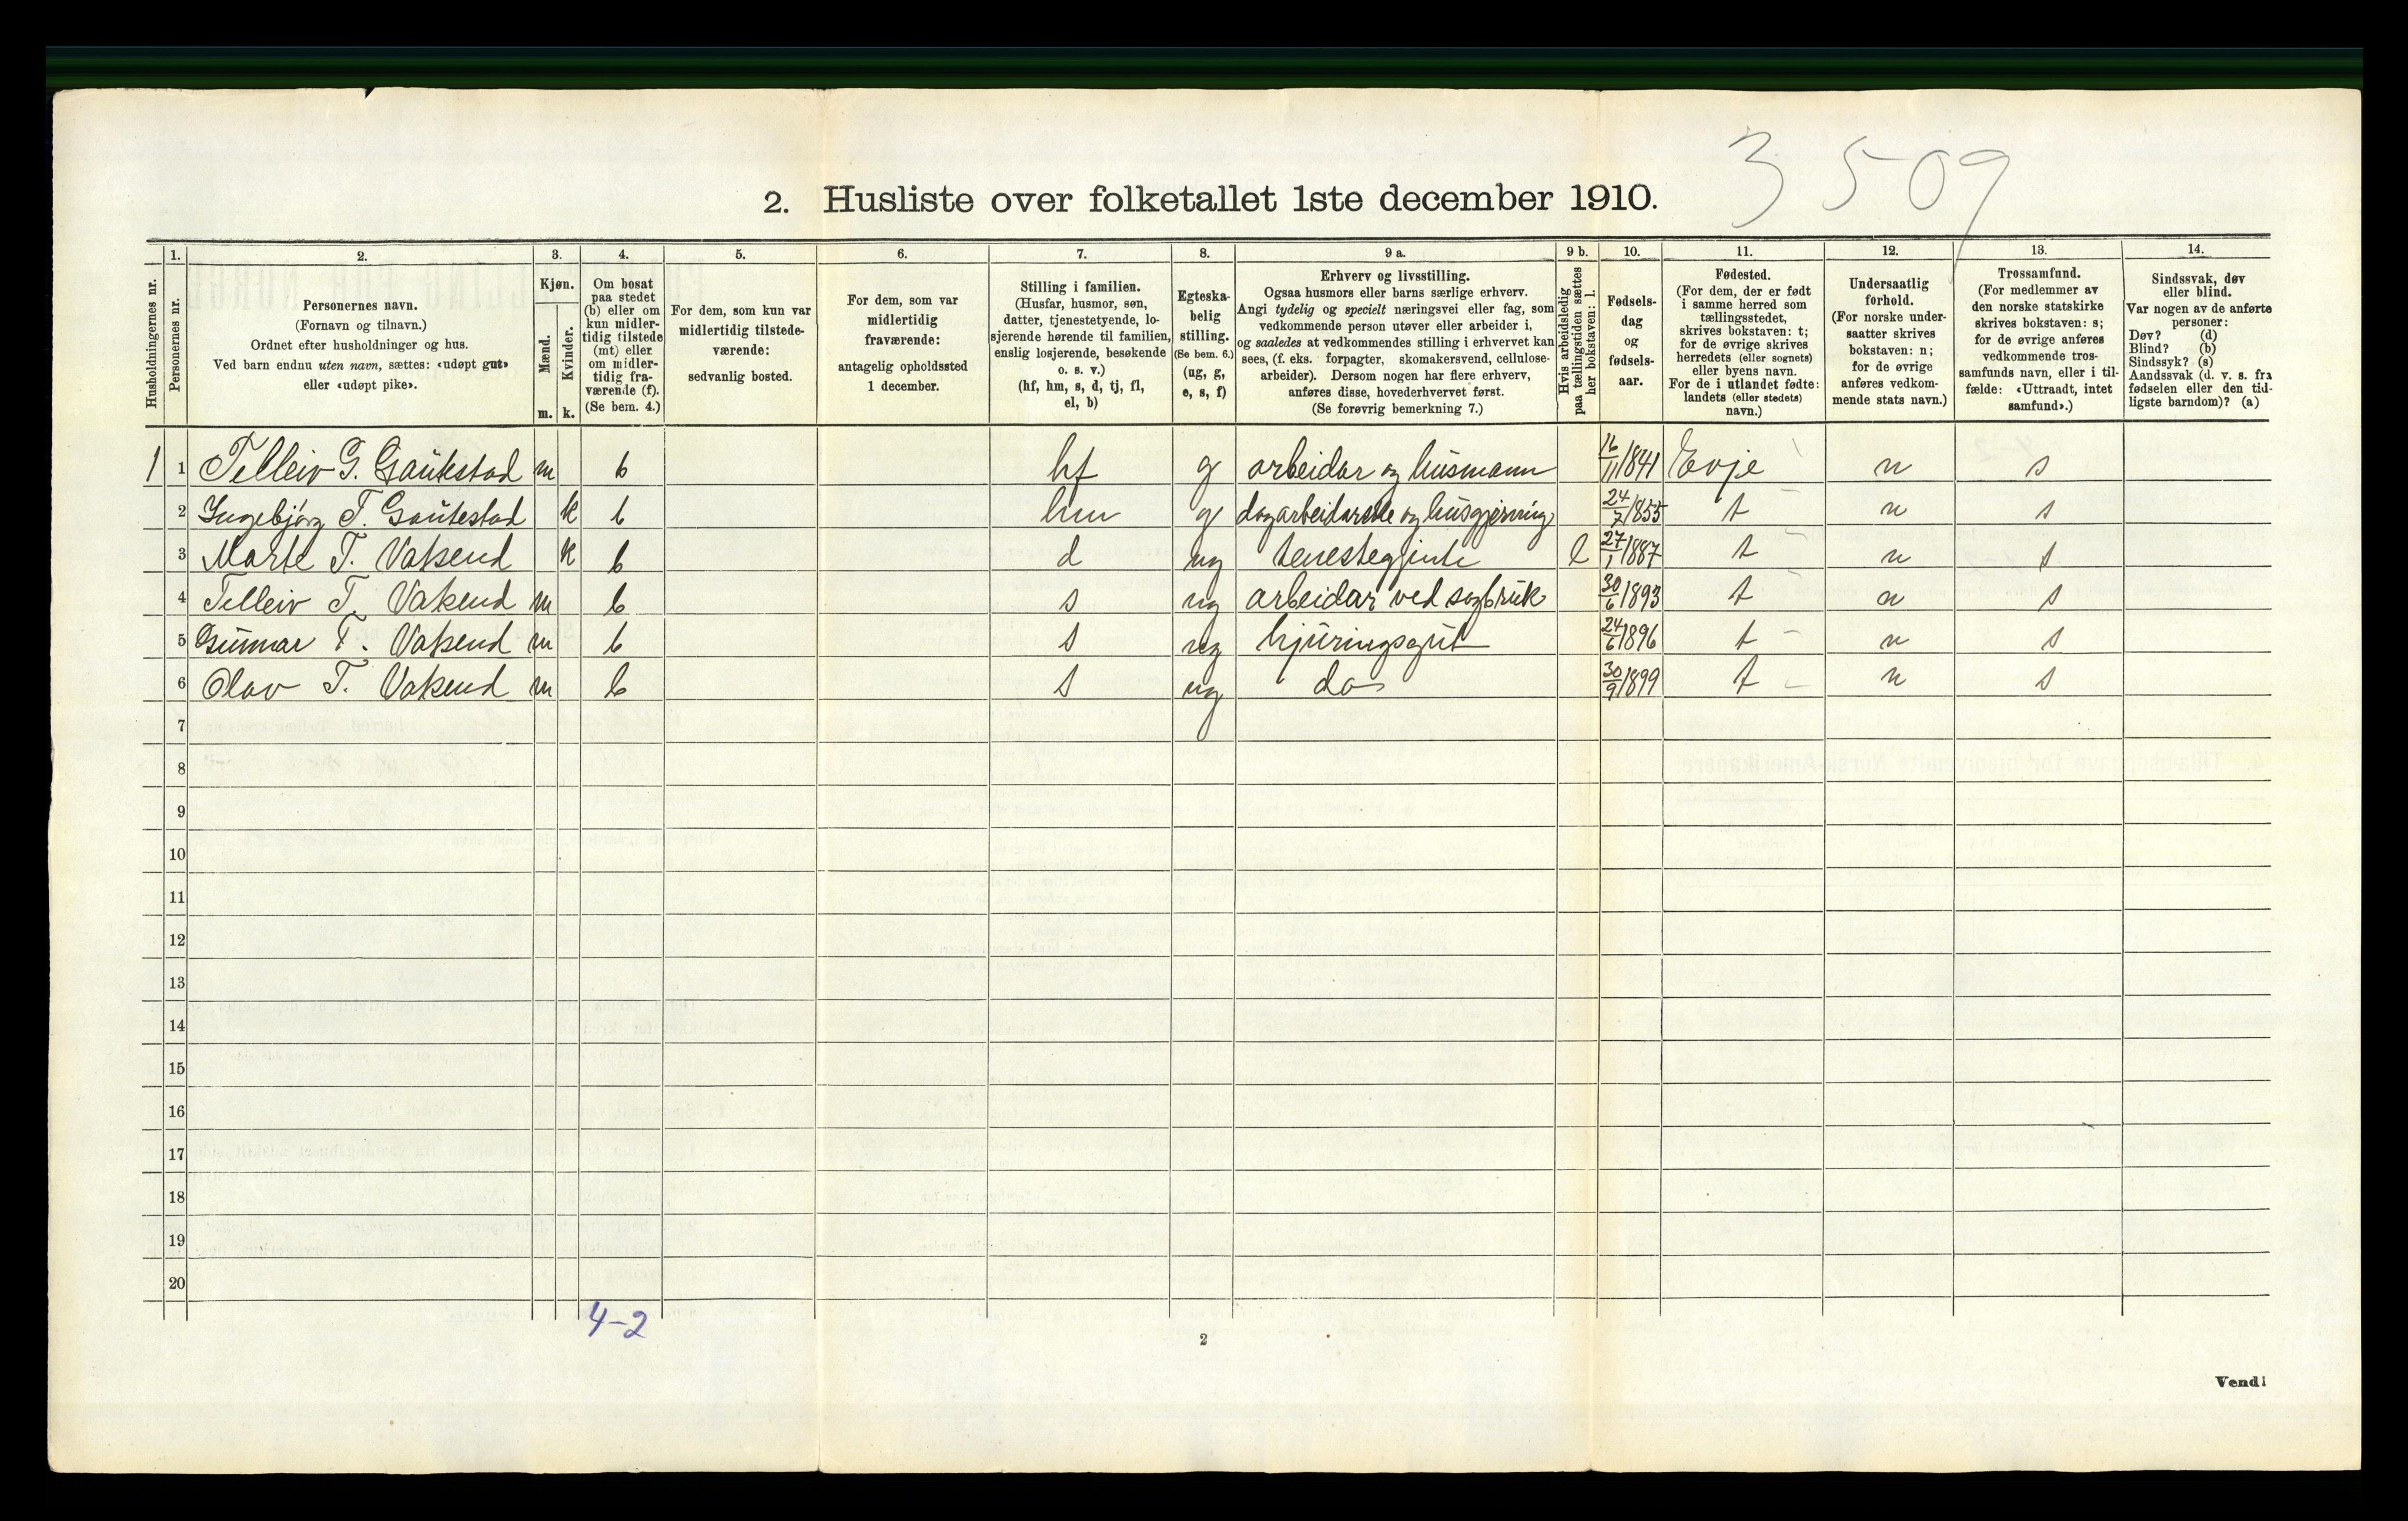 3 5 09
2. Husliste over folketallet 1ste december 1910.
Husholdningernes nr.
1.
Personernes nr.
2.
Personernes navn.
(Fornavn og tilnavn.)
Ordnet efter husholdninger og hus.
Ved barn endnu uten navn, sættes: «udøpt gut»
eller «udøpt pike».
3.
Kjøn.
Mænd.
m.
Kvinder.
k.
4.
Om bosat
paa stedet
(b) eller om
kun midler-
tidig tilstede
(mt) eller
om midler-
tidig fra-
værende (f).
(Se bem. 4.)
5.
For dem, som kun var
midlertidig tilstede-
værende:
sedvanlig bosted.
6.
For dem, som var
midlertidig
fraværende:
antagelig opholdssted
1 december.
7.
Stilling i familien.
(Husfar, husmor, søn,
datter, tjenestetyende, lo-
sjerende hørende til familien,
enslig losjerende, besøkende
o. s. v.)
(hf, hm, s, d, tj, fl,
el, b)
8.
Egteska-
belig
stilling.
(Se bem. 6.)
(ug, g,
e, s, f)
9 a.
Erhverv og livsstilling.
Ogsaa husmors eller barns særlige erhverv.
Angi tydelig og specielt næringsvei eller fag, som
vedkommende person utøver eller arbeider i,
og saaledes at vedkommendes stilling i erhvervet kan
sees, (f. eks. forpagter, skomakersvend, cellulose-
arbeider). Dersom nogen har flere erhverv,
anføres disse, hovederhvervet først.
(Se forøvrig bemerkning 7.)
9 b.
Hvis arbeidsledig
paa tællingstiden sættes
her bokstaven: l.
10.
Fødsels-
dag
og
fødsels-
aar.
11.
Fødested.
(For dem, der er født
i samme herred som
tællingsstedet,
skrives bokstaven: t;
for de øvrige skrives
herredets (eller sognets)
eller byens navn.
For de i utlandet fødte:
landets (eller stedets)
navn.)
12.
Undersaatlig
førhold.
(For norske under-
saatter skrives
bokstaven: n;
for de øvrige
anføres vedkom-
mende stats navn.)
13.
Trossamfund.
(For medlemmer av
den norske statskirke
skrives bokstaven: s;
for de øvrige anføres
vedkommende tros-
samfunds navn, eller i til-
fælde: «Uttraadt, intet
samfund».)
14.
Sindssvak, døv
eller blind.
Var nogen av de anførte
personer:
Døv? (d)
Blind? (b)
Sindssyk? (s)
Aandssvak (d. v. s. fra
fødselen eller den tid-
ligste barndom)? (a)
1 1 Telleiv G. Gautestad m b hf g arbeidar og husmann 16/11 1841 Evje n s
2 Ingebjørg T. Gautestad k b hm g og husgjerning 24/7 1855 t n s
3 Marte T. Vatsend k b d ug tenestegjente l 27/1 1887 t n s
4 Telleiv T. Vatsend m b s ug arbeidar ved sagbruk 30/6 1893 t n s
5 Gunnar T. Vatsend m b s ug hjuringsgut 24/6 1896 t n s
6 Olav T. Vatsend m b s ug do 30/9 1899 t n s
7
8
9
10
11
12
13
14
15
16
17
18
19
20
4-2
2
Vend!